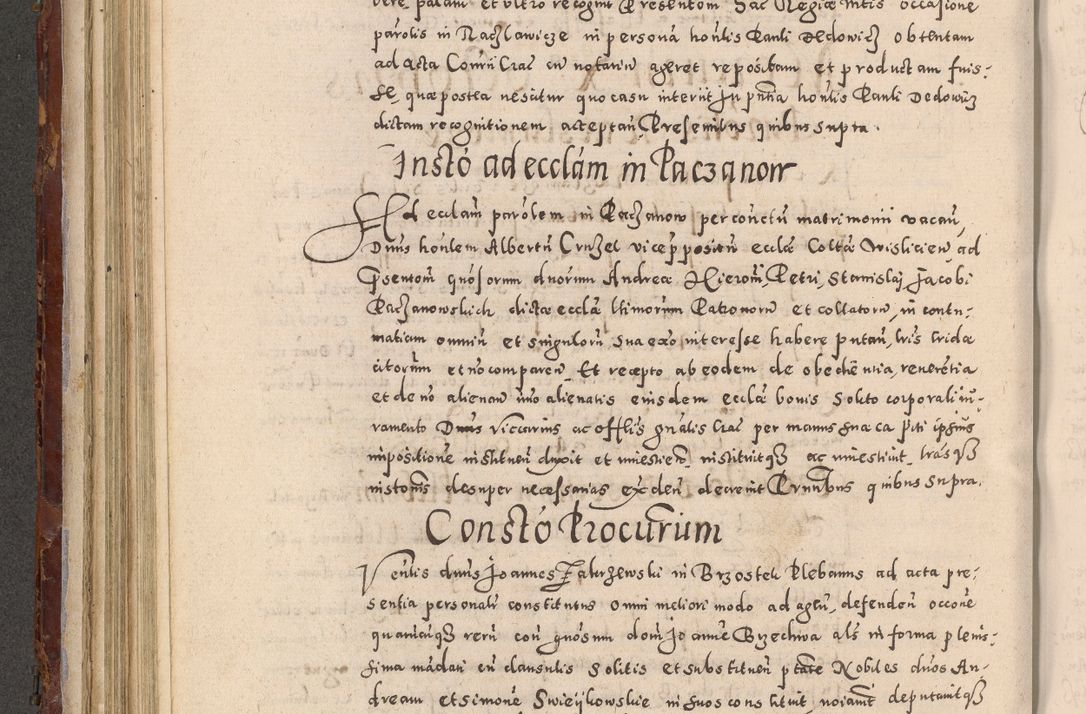 vere, palam et ultro recognit Presentem Sac Regiæ Mtis occasione
parolis in Raczlawicze in persona honlis Pauli Dedowicz obtentam
ad Acta Conrii Crac cu notariu ageret repositam et productam fuis-
se, quæ postea nescitur quo casu interiit In pntia honlis Pauli Dedowicz
dictam recognitionem acceptan, Presentibus quibus supra.
Instō ad ecclam in Paczanow
Ad ecclam parolem in Paczanow per conctū matrimonii vacan,
Dnus honlem Albertū Cruzel vicep̄positū ecclæ Colltæ Wislicien ad
Psentom gnosorum dnorum Andreæ Hieronī, Petri, Stanislai, Jacobi
Paczanowskich dictæ ecclæ ltimorum Patronorū et collatorū, in contu-
matiam omniū et singulorū sua eāo interesse habere putan, lris cridæ
citorum et no comparen, Et recepto ab eodem de obedientia, reverētia
et de nō alienan imo alienatis eiusdem ecclæ bonis solito corporali iu-
ramento Dnus Viccarius ac offlis gnalis Crac per manus sua ca piti ipsius
impositione instituen duxit et investien, instituitqȝ ac investiuit, lrasqȝ
instonis desuper necessarias exceden decrevit Prntibus quibus supra.
Constō Procurūm
Venlis dnus Joannes Zakrzewski in Brzostek Plebanus ad acta pre-
sentia personalr constitutus omni meliori modo ad agen, defenden occōne
quarumcunqȝ rerū con gnosum dom Joanne Brzechwa als in forma plenis-
sima mādati cū clausulis solitis et substituen ptate Nobiles duos An-
dream et Simone Swieykowskie in suos constituit, noiavit deputavitqȝ